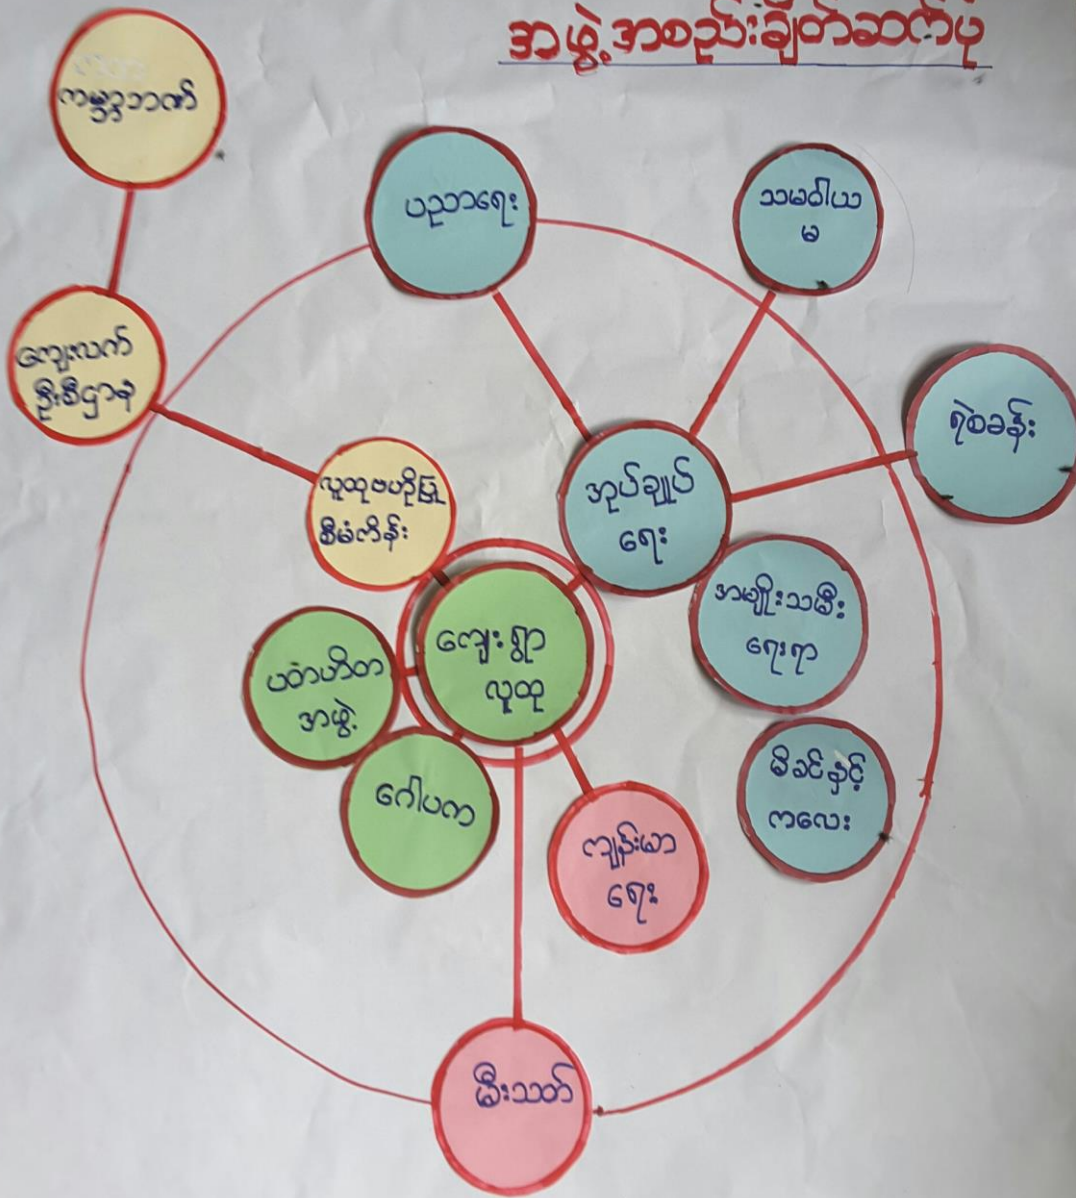 အဖွဲ့အစည်းချိတ်ဆက်ပုံ
ကမ္ဘာ့ဘဏ်
ပညာရေး
သမဝါယ
မ
ကျေးလက်
ဦးစီးဌာန
ရဲစခန်း
လူထုဗဟိုပြု
စီမံကိန်း
အုပ်ချုပ်
ရေး
အမျိုးသမီး
ရေးရာ
ကျေးရွာ
လူထု
ပတ်ဟိတ
အဖွဲ့
ဂေါပက
မိခင်နှင့်
ကလေး
ကျန်းမာ
ရေး
မီးသတ်